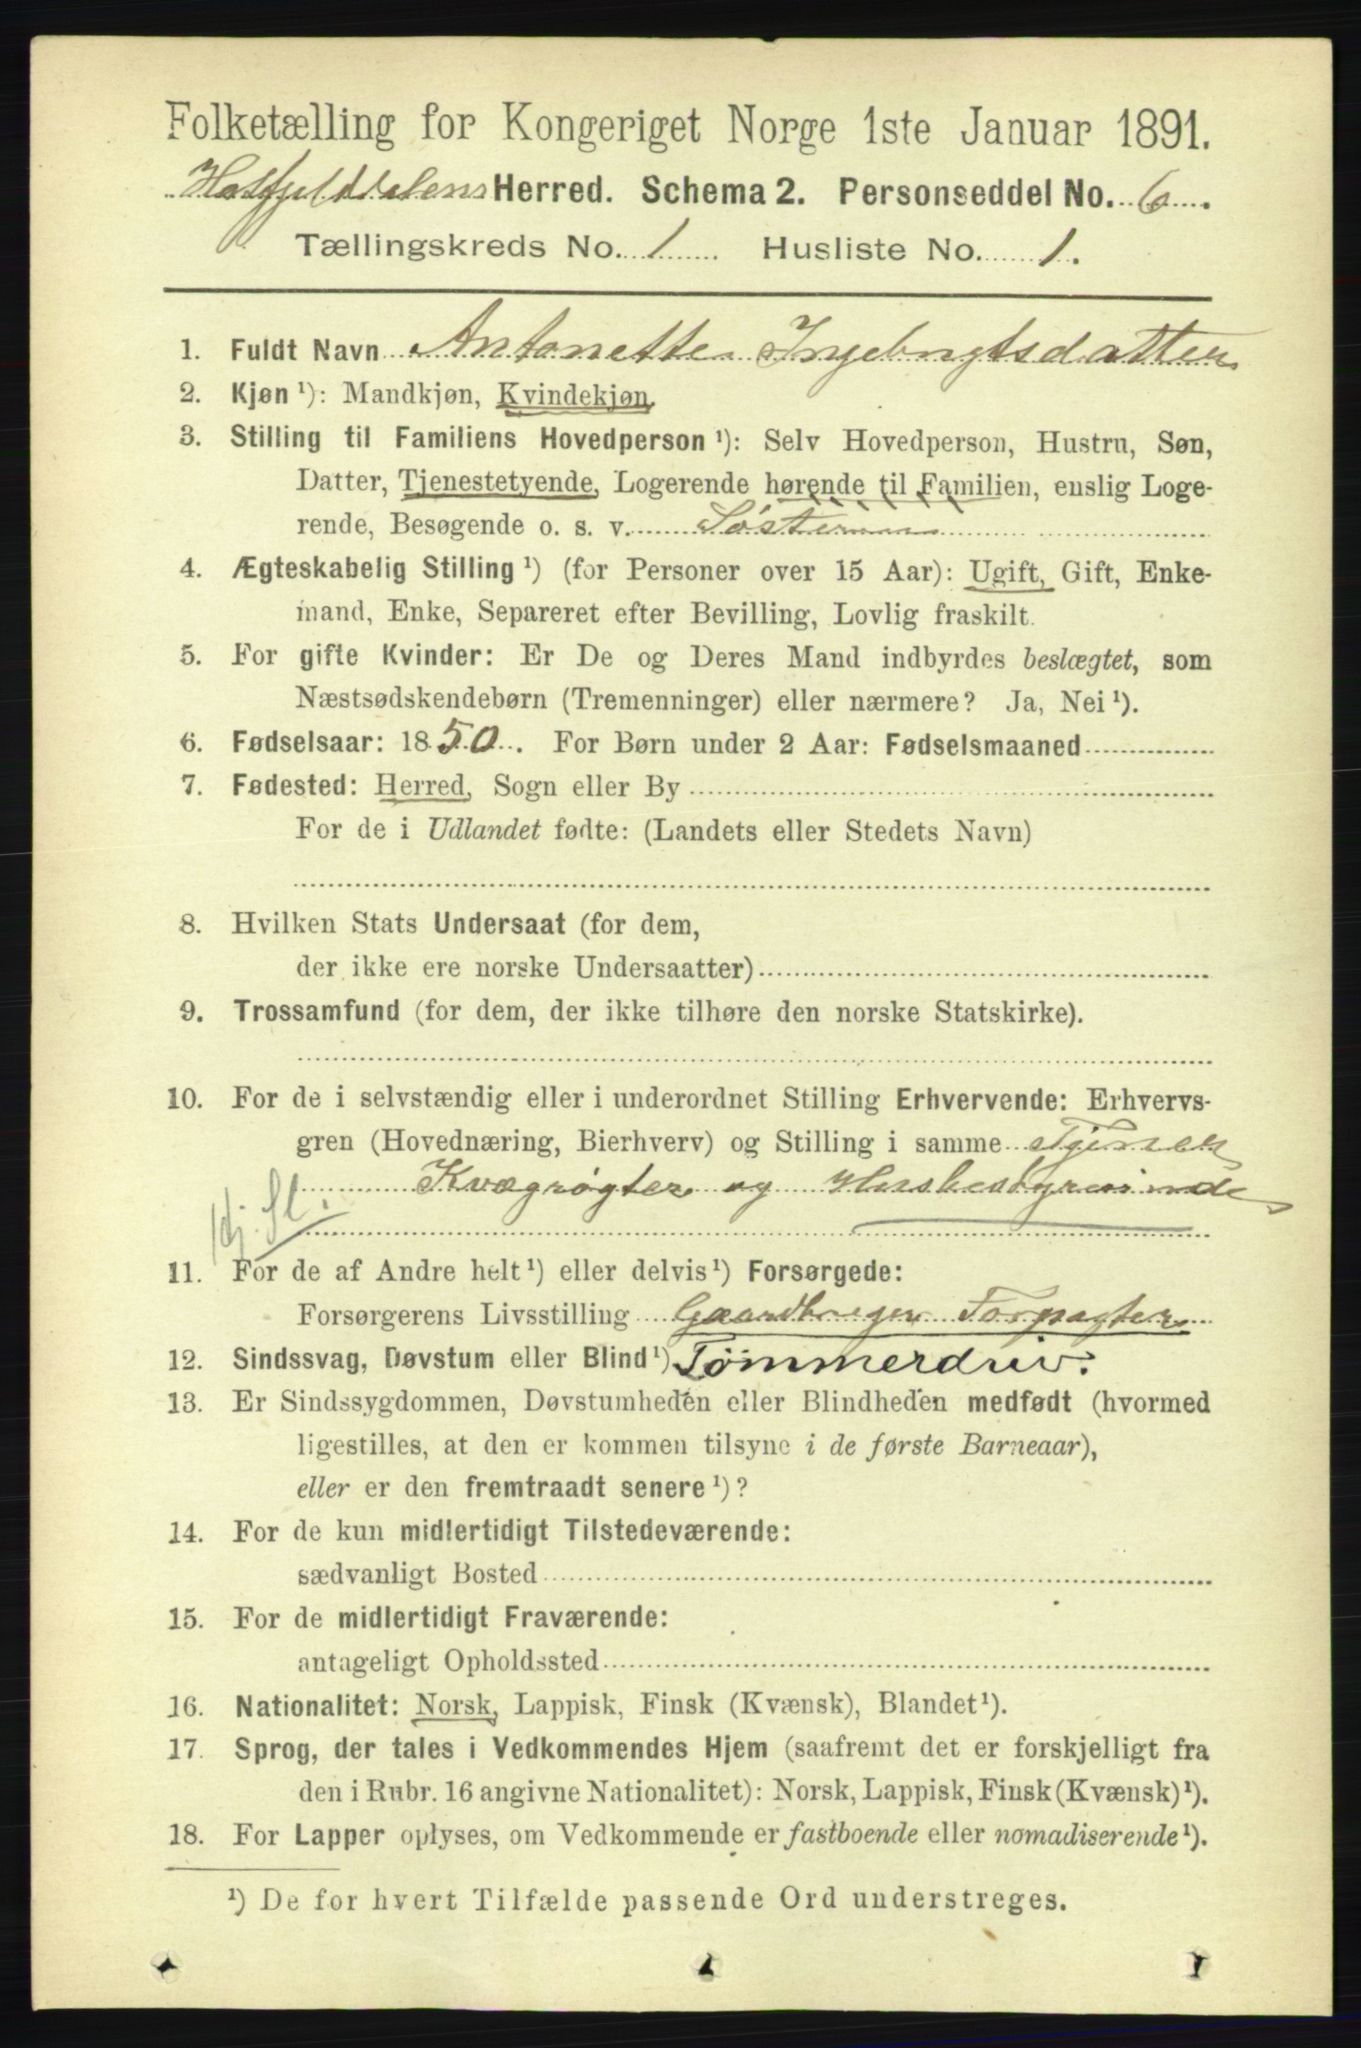 Folketælling for Kongeriget Norge 1ste Januar 1891.
Hatfjelddalens Herred. Schema 2. Personseddel No. 6.
Tællingskreds No. 1 Husliste No. 1.
1. Fuldt Navn Antonette Ingebrigtsdatter
2. Kjøn ¹): Mandkjøn, Kvindekjøn.
3. Stilling til Familiens Hovedperson ¹): Selv Hovedperson, Hustru, Søn,
Datter, Tjenestetyende, Logerende hørende til Familien, enslig Loge-
rende, Besøgende o. s. v. Søster
4. Ægteskabelig Stilling ¹) (for Personer over 15 Aar): Ugift, Gift, Enke-
mand, Enke, Separeret efter Bevilling, Lovlig fraskilt.
5. For gifte Kvinder: Er De og Deres Mand indbyrdes beslægtet, som
Næstsødskendebørn (Tremenninger) eller nærmere? Ja, Nei ¹).
6. Fødselsaar: 1850. For Børn under 2 Aar: Fødselsmaaned
7. Fødested: Herred, Sogn eller By
For de i Udlandet fødte: (Landets eller Stedets Navn)
8. Hvilken Stats Undersaat (for dem,
der ikke ere norske Undersaatter)
9. Trossamfund (for dem, der ikke tilhøre den norske Statskirke).
10. For de i selvstændig eller i underordnet Stilling Erhvervende: Erhvervs-
gren (Hovednæring, Bierhverv) og Stilling i samme
Kvægrøgter og Husbestyrerinde
11. For de af Andre helt ¹) eller delvis ¹) Forsørgede:
Forsørgerens Livsstilling Gaardbruger Forpagter
12. Sindssvag, Døvstum eller Blind ¹) Tømmerdriv.
13. Er Sindssygdommen, Døvstumheden eller Blindheden medfødt (hvormed
ligestilles, at den er kommen tilsyne i de første Barneaar),
eller er den fremtraadt senere ¹)?
14. For de kun midlertidigt Tilstedeværende:
sædvanligt Bosted
15. For de midlertidigt Fraværende:
antageligt Opholdssted
16. Nationalitet: Norsk, Lappisk, Finsk (Kvænsk), Blandet ¹).
17. Sprog, der tales i Vedkommendes Hjem (saafremt det er forskjelligt fra
den i Rubr. 16 angivne Nationalitet): Norsk, Lappisk, Finsk (Kvænsk) ¹).
18. For Lapper oplyses, om Vedkommende er fastboende eller nomadiserende ¹).
¹) De for hvert Tilfælde passende Ord understreges.